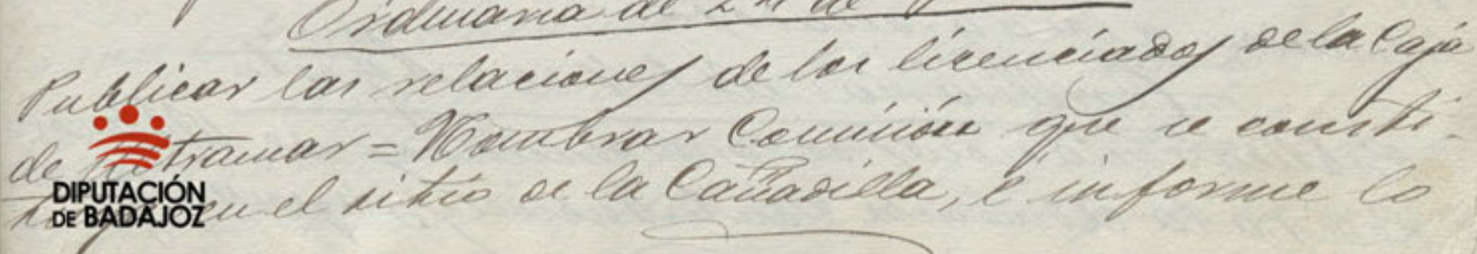 Ordinaria de 24 de
Publicar las relaciones de los licenciados de la Caja
de Ultramar = Nombrar Comision que se consti-
en el sitio de la Cañadilla, é informe lo
DIPUTACIÓN
DE BADAJOZ